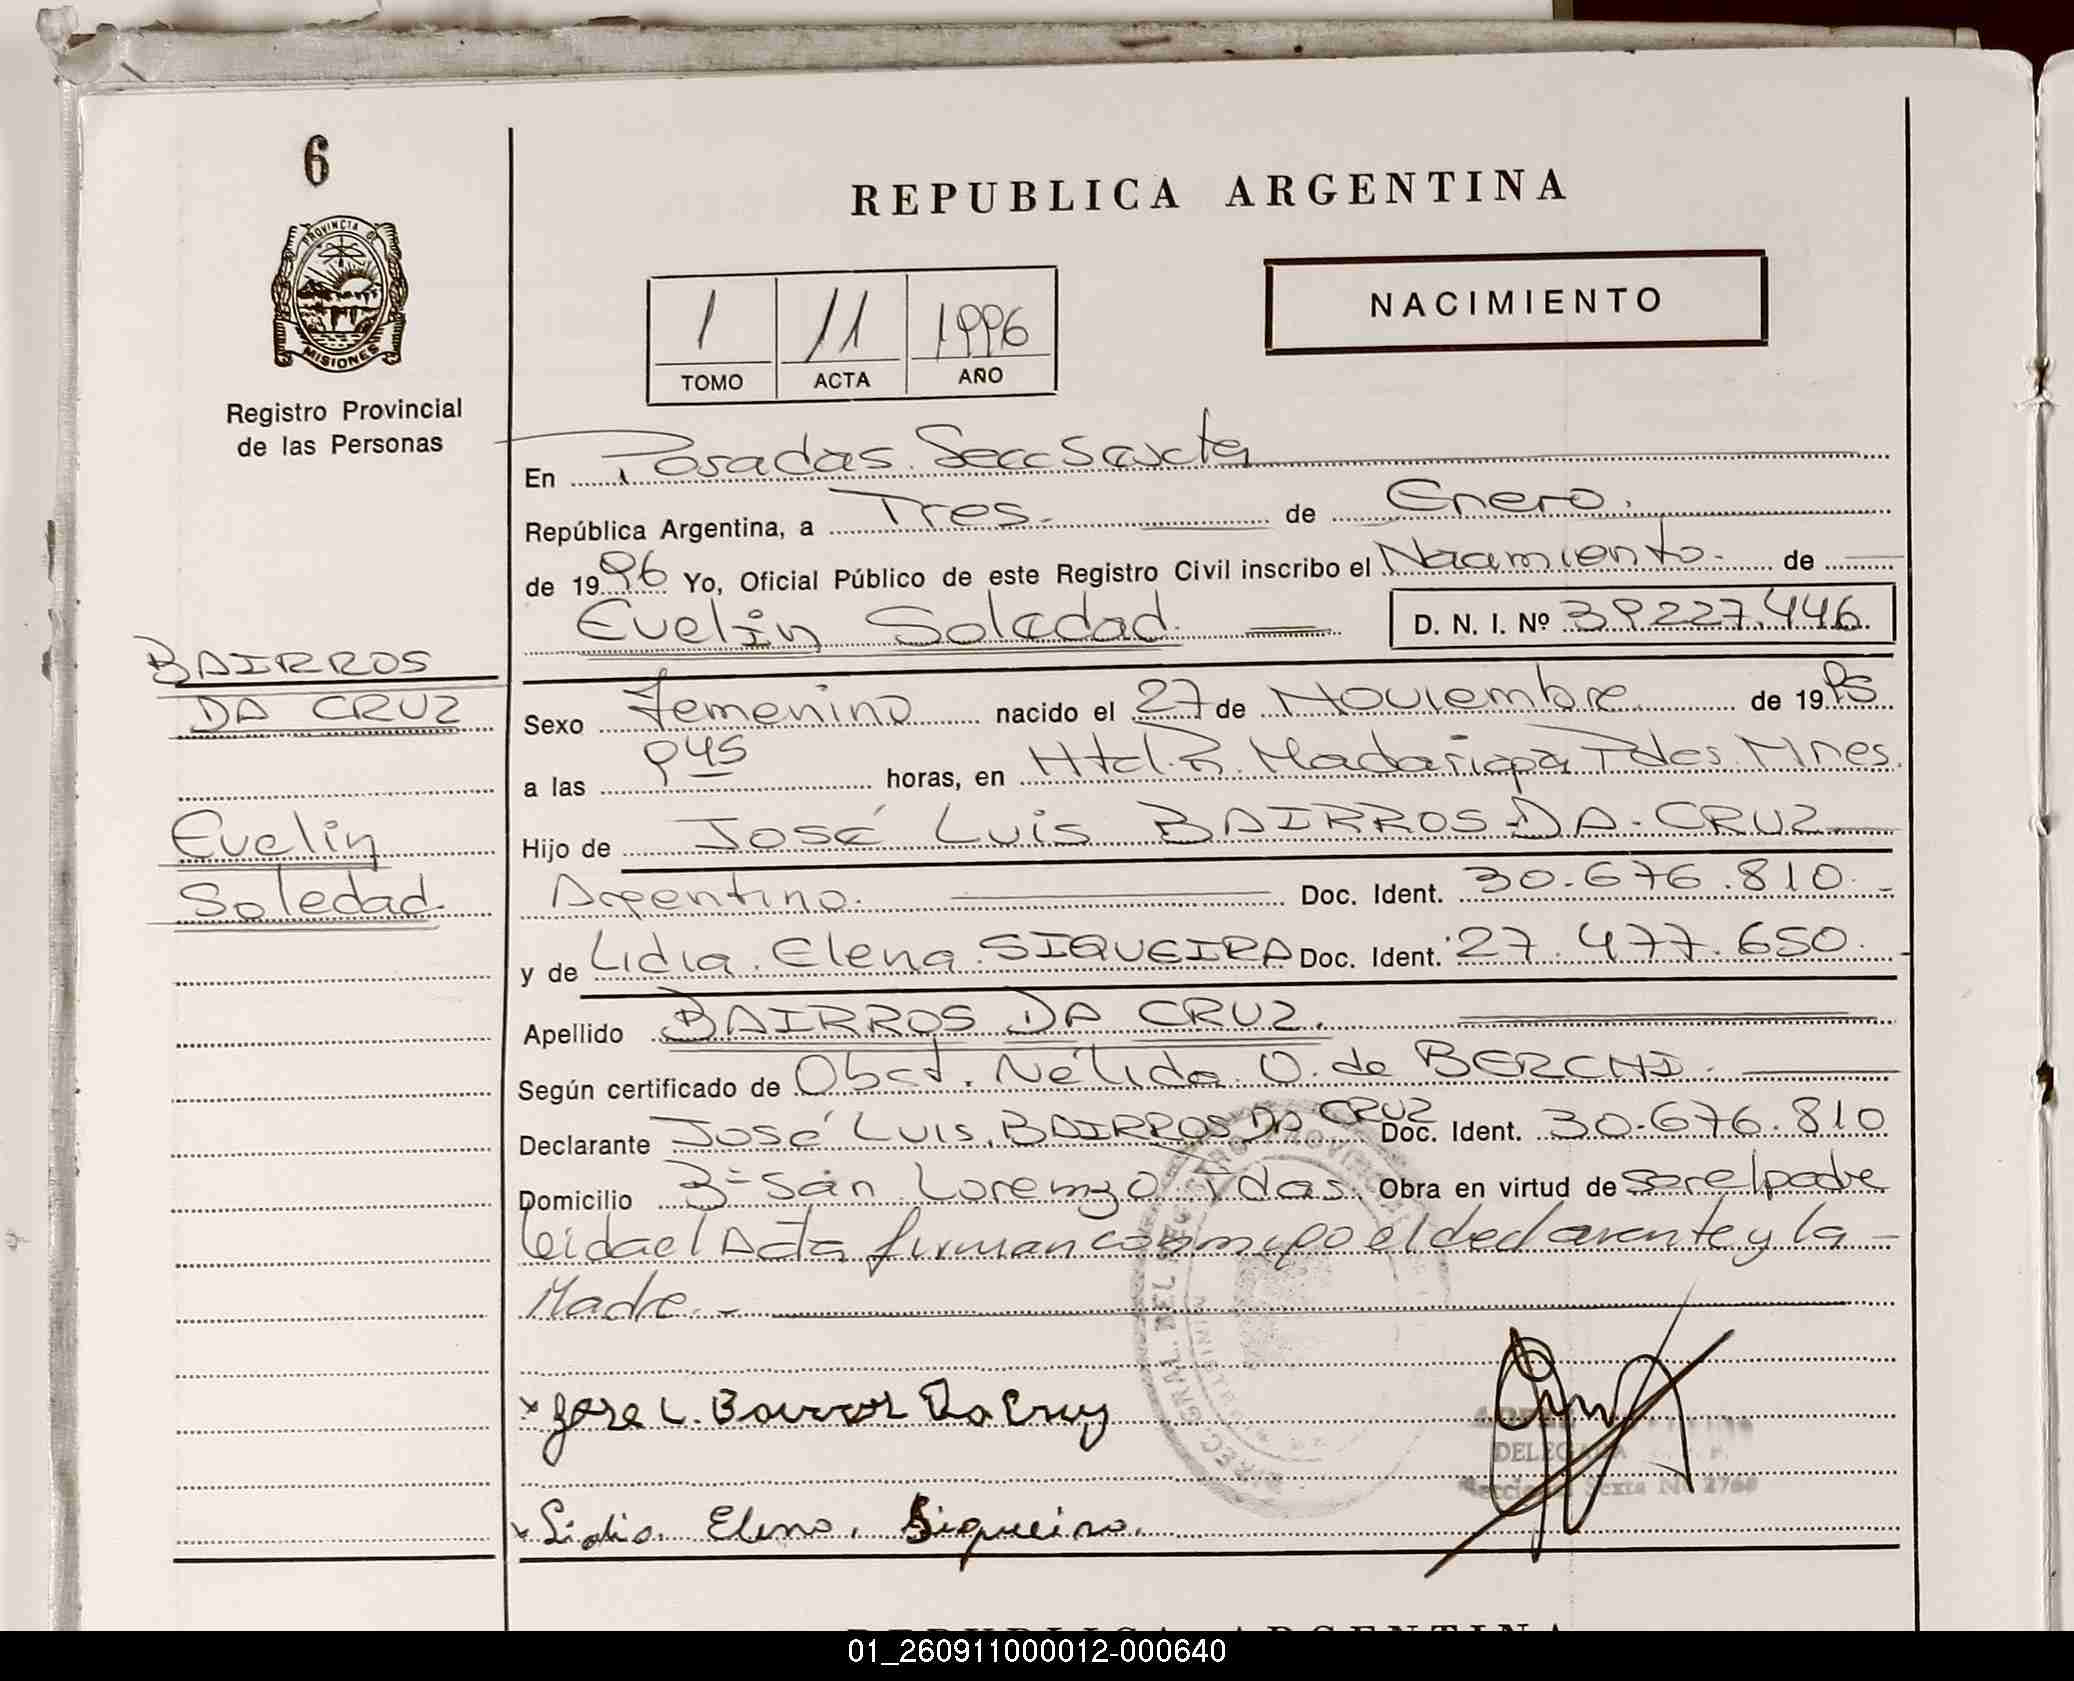 6
PROVINCIA DE
MISIONES
Registro Provincial
de las Personas
REPUBLICA ARGENTINA
NACIMIENTO
1 11 1996
TOMO ACTA AÑO
En Posadas. Secc Sexta
República Argentina, a Tres. de Enero.
de 1996 Yo, Oficial Público de este Registro Civil inscribo el Nacimiento. de
Evelin Soledad. D. N. I. Nº 39.227.446.
BAIRROS
DA CRUZ
Evelin
Soledad.
Sexo Femenino nacido el 27 de Noviembre de 1995
a las 945 horas, en Htal. R. Madariaga Pdas. Mnes.
Hijo de José Luis BAIRROS DA CRUZ
Argentino. Doc. Ident. 30.676.810.
y de Lidia. Elena SIQUEIRA Doc. Ident. 27.477.650.
Apellido BAIRROS DA CRUZ.
Según certificado de Obst. Nélida O. de BERCHI.
Declarante José Luis BAIRROS DA CRUZ Doc. Ident. 30.676.810
Domicilio Bº San Lorenzo Pdas. Obra en virtud de ser el padre
leida el Acta firman conmigo el declarante y la
Madre.
Jose L. Bairros Da Cruz
DELEGADA
Seccional Sexta Nº 2760
Lidia. Elena. Siqueira.
REPUBLICA ARGENTINA
01_260911000012-000640